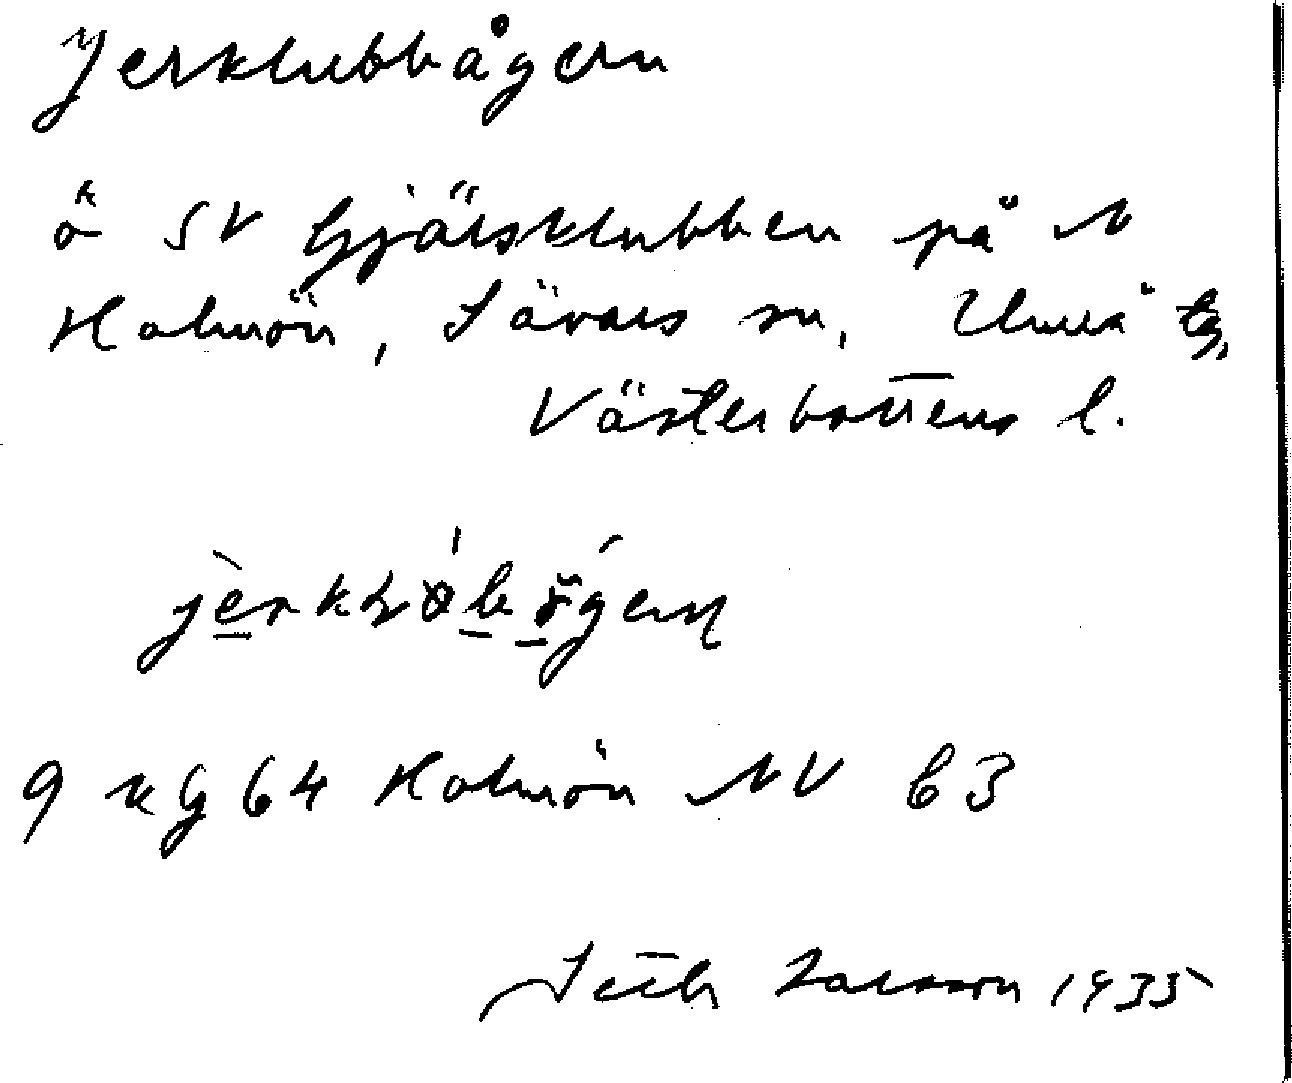 Jerklubbågern
ö SV Gjärsklubben på N
Holmön, Sävars sn, Umeå tg,
Västerbottens l.
9 k G 64 Holmön NV b3
Larsson 1935